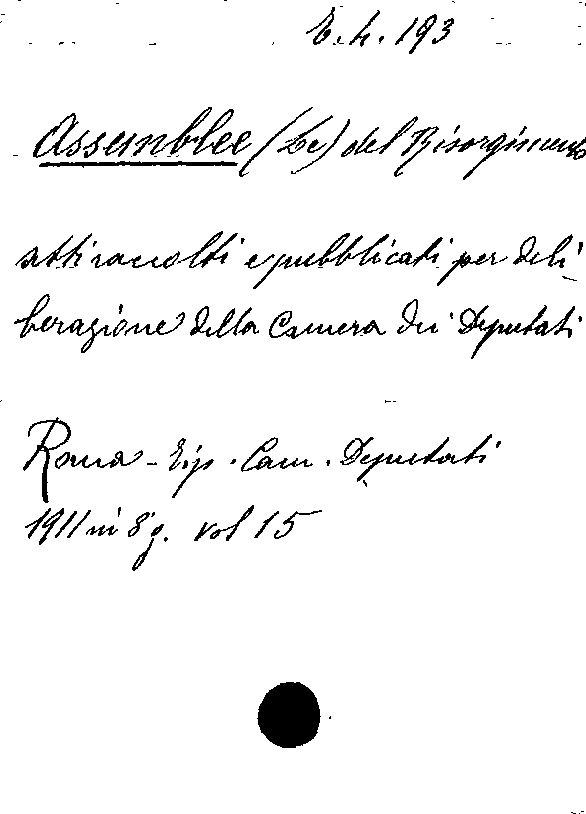 E.h. 193
Assemblee (Le) del Risorgimento
atti raccolti e pubblicati per deli
berazione della Camera dei Deputati
Roma - Tip. Cam. Deputati
1911 in 8° g. vol 15